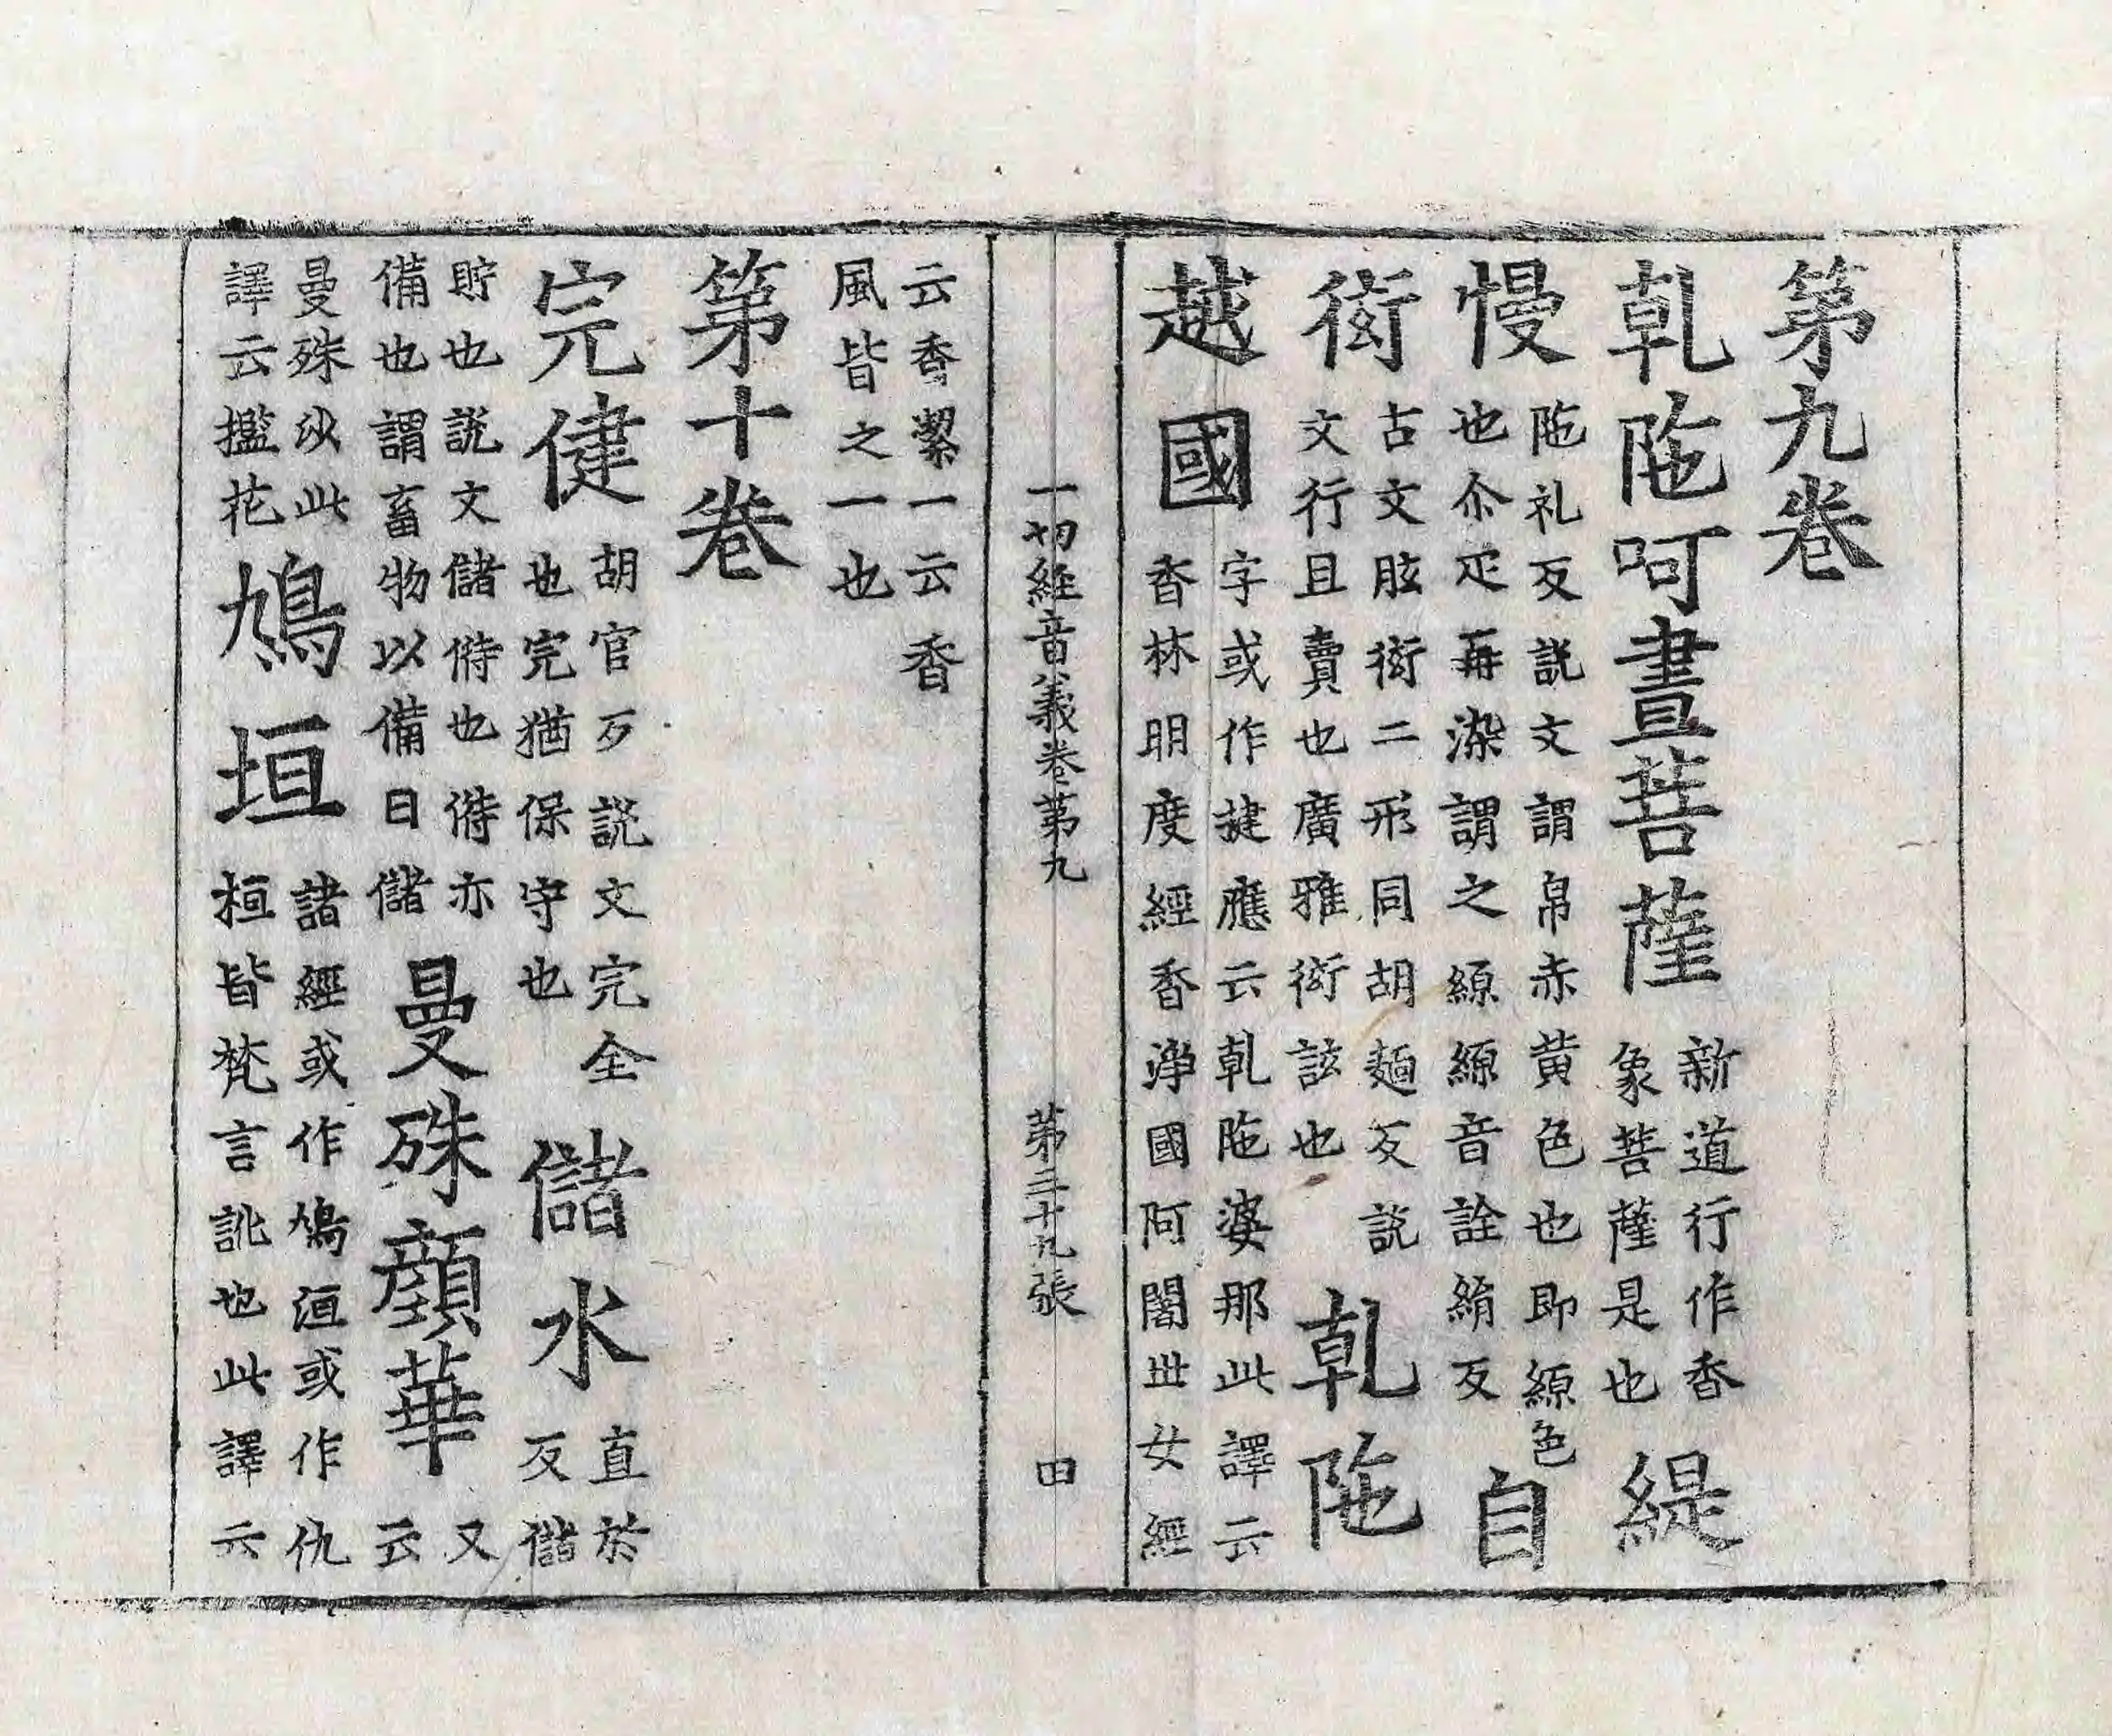 第九卷
乹陁呵晝菩薩 新道行作香象菩薩是也 緹
慢 陁礼反說文謂帛赤黃色也即縓色也尒疋再染謂之縓縓音詮絹反 自
衒 古文眩衒二形同胡麵反說文行且賣也廣雅衒該也 乹陁
越國 字或作揵應云乹陁婆那此譯云香林明度經香淨國阿闍丗女經
一切經音義卷第九 第二十九張 田
云香絜一云香風皆之一也
第十卷
完健 胡官反說文完全也完猶保守也 儲水 直於反儲
貯也說文儲偫也偫亦備也謂畜物以備日儲 曼殊顏華 又云
曼殊沙此譯云擥花 鳩垣 諸經或作鳩洹或作仇桓皆梵言訛也此譯云